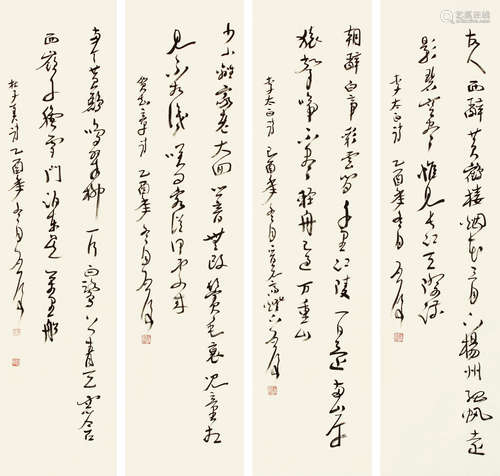 故人西辭黃鶴樓烟花三月下揚州孤帆遠
影碧空盡惟見長江天際流
李太白詩 乙酉年冬月
朝辭白帝彩雲間千里江陵一日還兩岸
猿聲啼不盡輕舟已過萬重山
李太白詩 乙酉年冬月
少小離家老大回鄉音無改鬢毛衰兒童相
見不相識笑問客從何處來
賀知章詩 乙酉年冬月
兩个黃鸝鳴翠柳一行白鷺上青天窗含
西嶺千秋雪門泊東吳萬里船
杜子美詩 乙酉年冬月